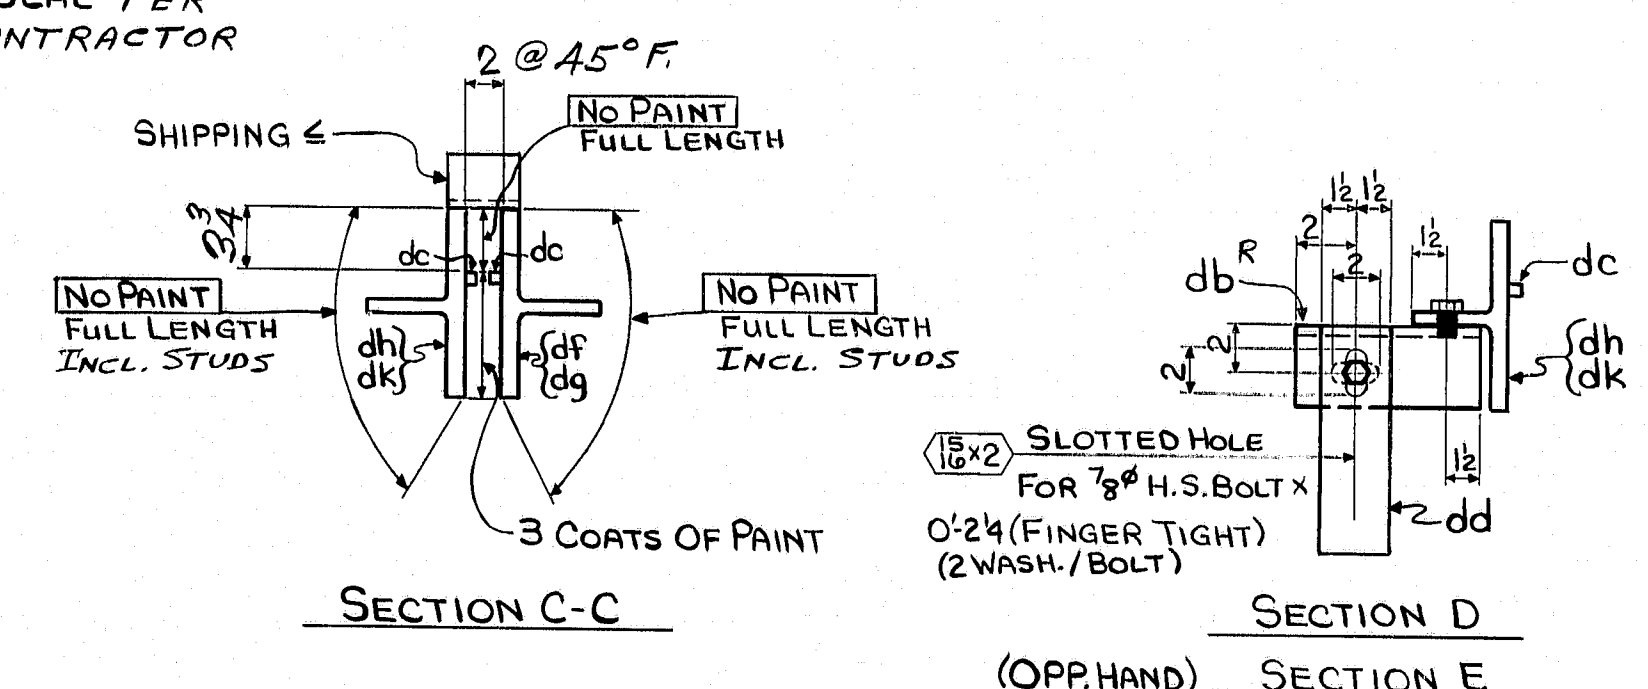 PER
CONTRACTOR
2 @ 45°F.
NO PAINT
FULL LENGTH
SHIPPING ≤
3 3/4
dc
dc
NO PAINT
FULL LENGTH
INCL. STUDS
NO PAINT
FULL LENGTH
INCL. STUDS
dh
dk
df
dg
3 COATS OF PAINT
SECTION C-C
1 1/2 1 1/2
2
1 1/2
2
db R
dc
2
2
dh
dk
15/16 x 2 SLOTTED HOLE
FOR 7/8 ø H.S. BOLT x
0'-2 1/4 (FINGER TIGHT)
(2 WASH./BOLT)
1 1/2
dd
SECTION D
(OPP. HAND) SECTION E